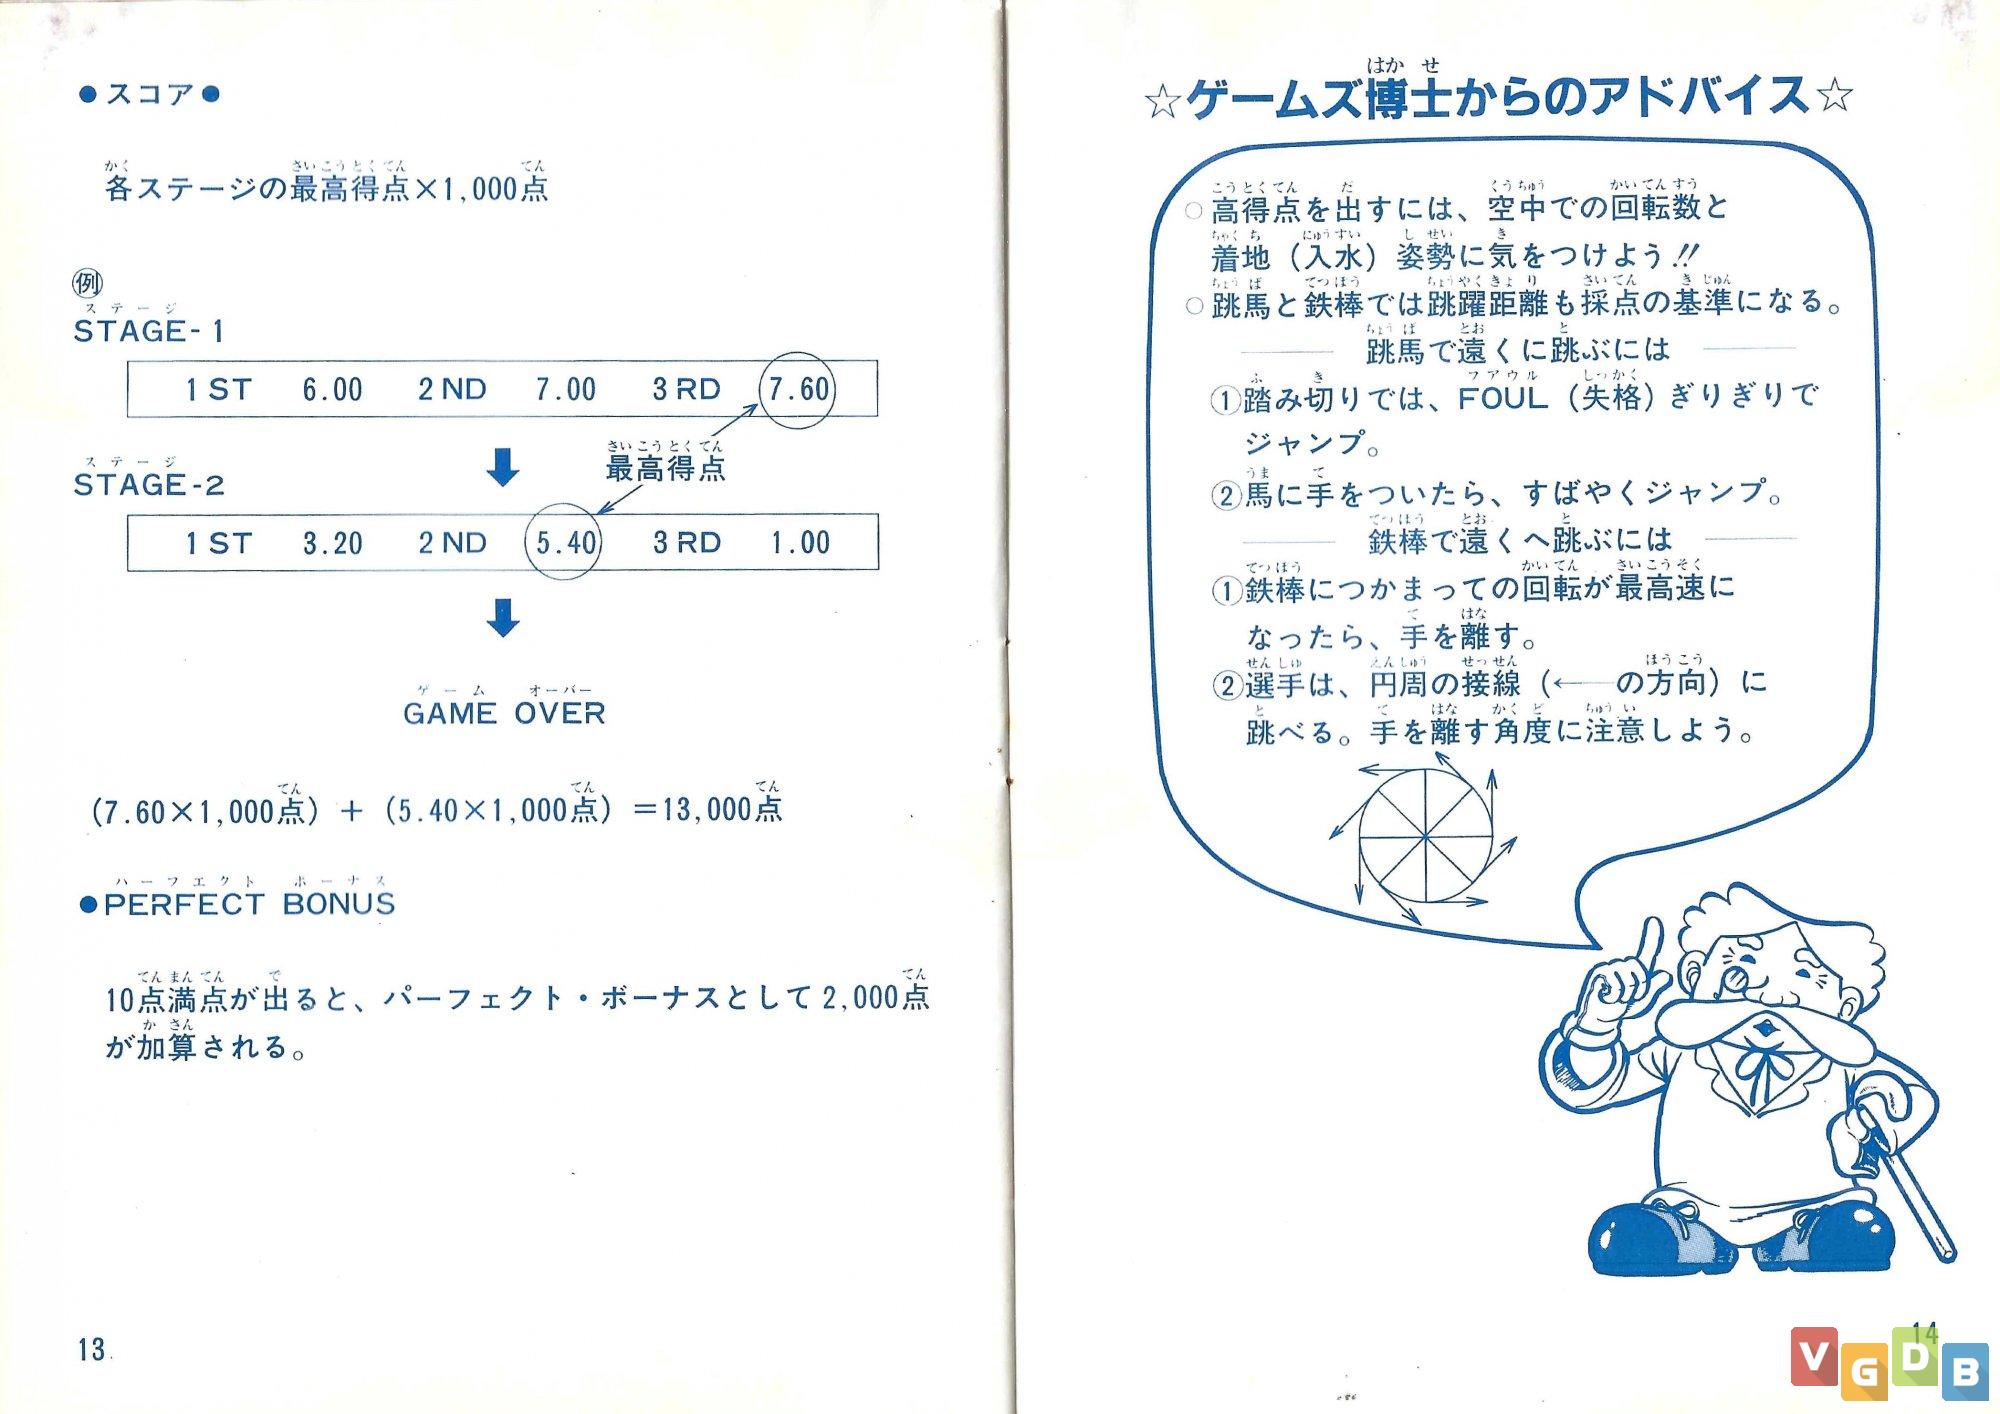 ●スコア●
各ステージの最高得点×1,000点
例
STAGE-1
1ST 6.00 2ND 7.00 3RD 7.60
最高得点
STAGE-2
1ST 3.20 2ND 5.40 3RD 1.00
GAME OVER
(7.60×1,000点) + (5.40×1,000点) =13,000点
●PERFECT BONUS
10点満点が出ると、パーフェクト・ボーナスとして2,000点
が加算される。
13
☆ゲームズ博士からのアドバイス☆
○高得点を出すには、空中での回転数と
着地(入水)姿勢に気をつけよう!!
○跳馬と鉄棒では跳躍距離も採点の基準になる。
跳馬で遠くに跳ぶには
①踏み切りでは、FOUL(失格)ぎりぎりで
ジャンプ。
②馬に手をついたら、すばやくジャンプ。
鉄棒で遠くへ跳ぶには
①鉄棒につかまっての回転が最高速に
なったら、手を離す。
②選手は、円周の接線(←の方向)に
跳べる。手を離す角度に注意しよう。
14
VGDB